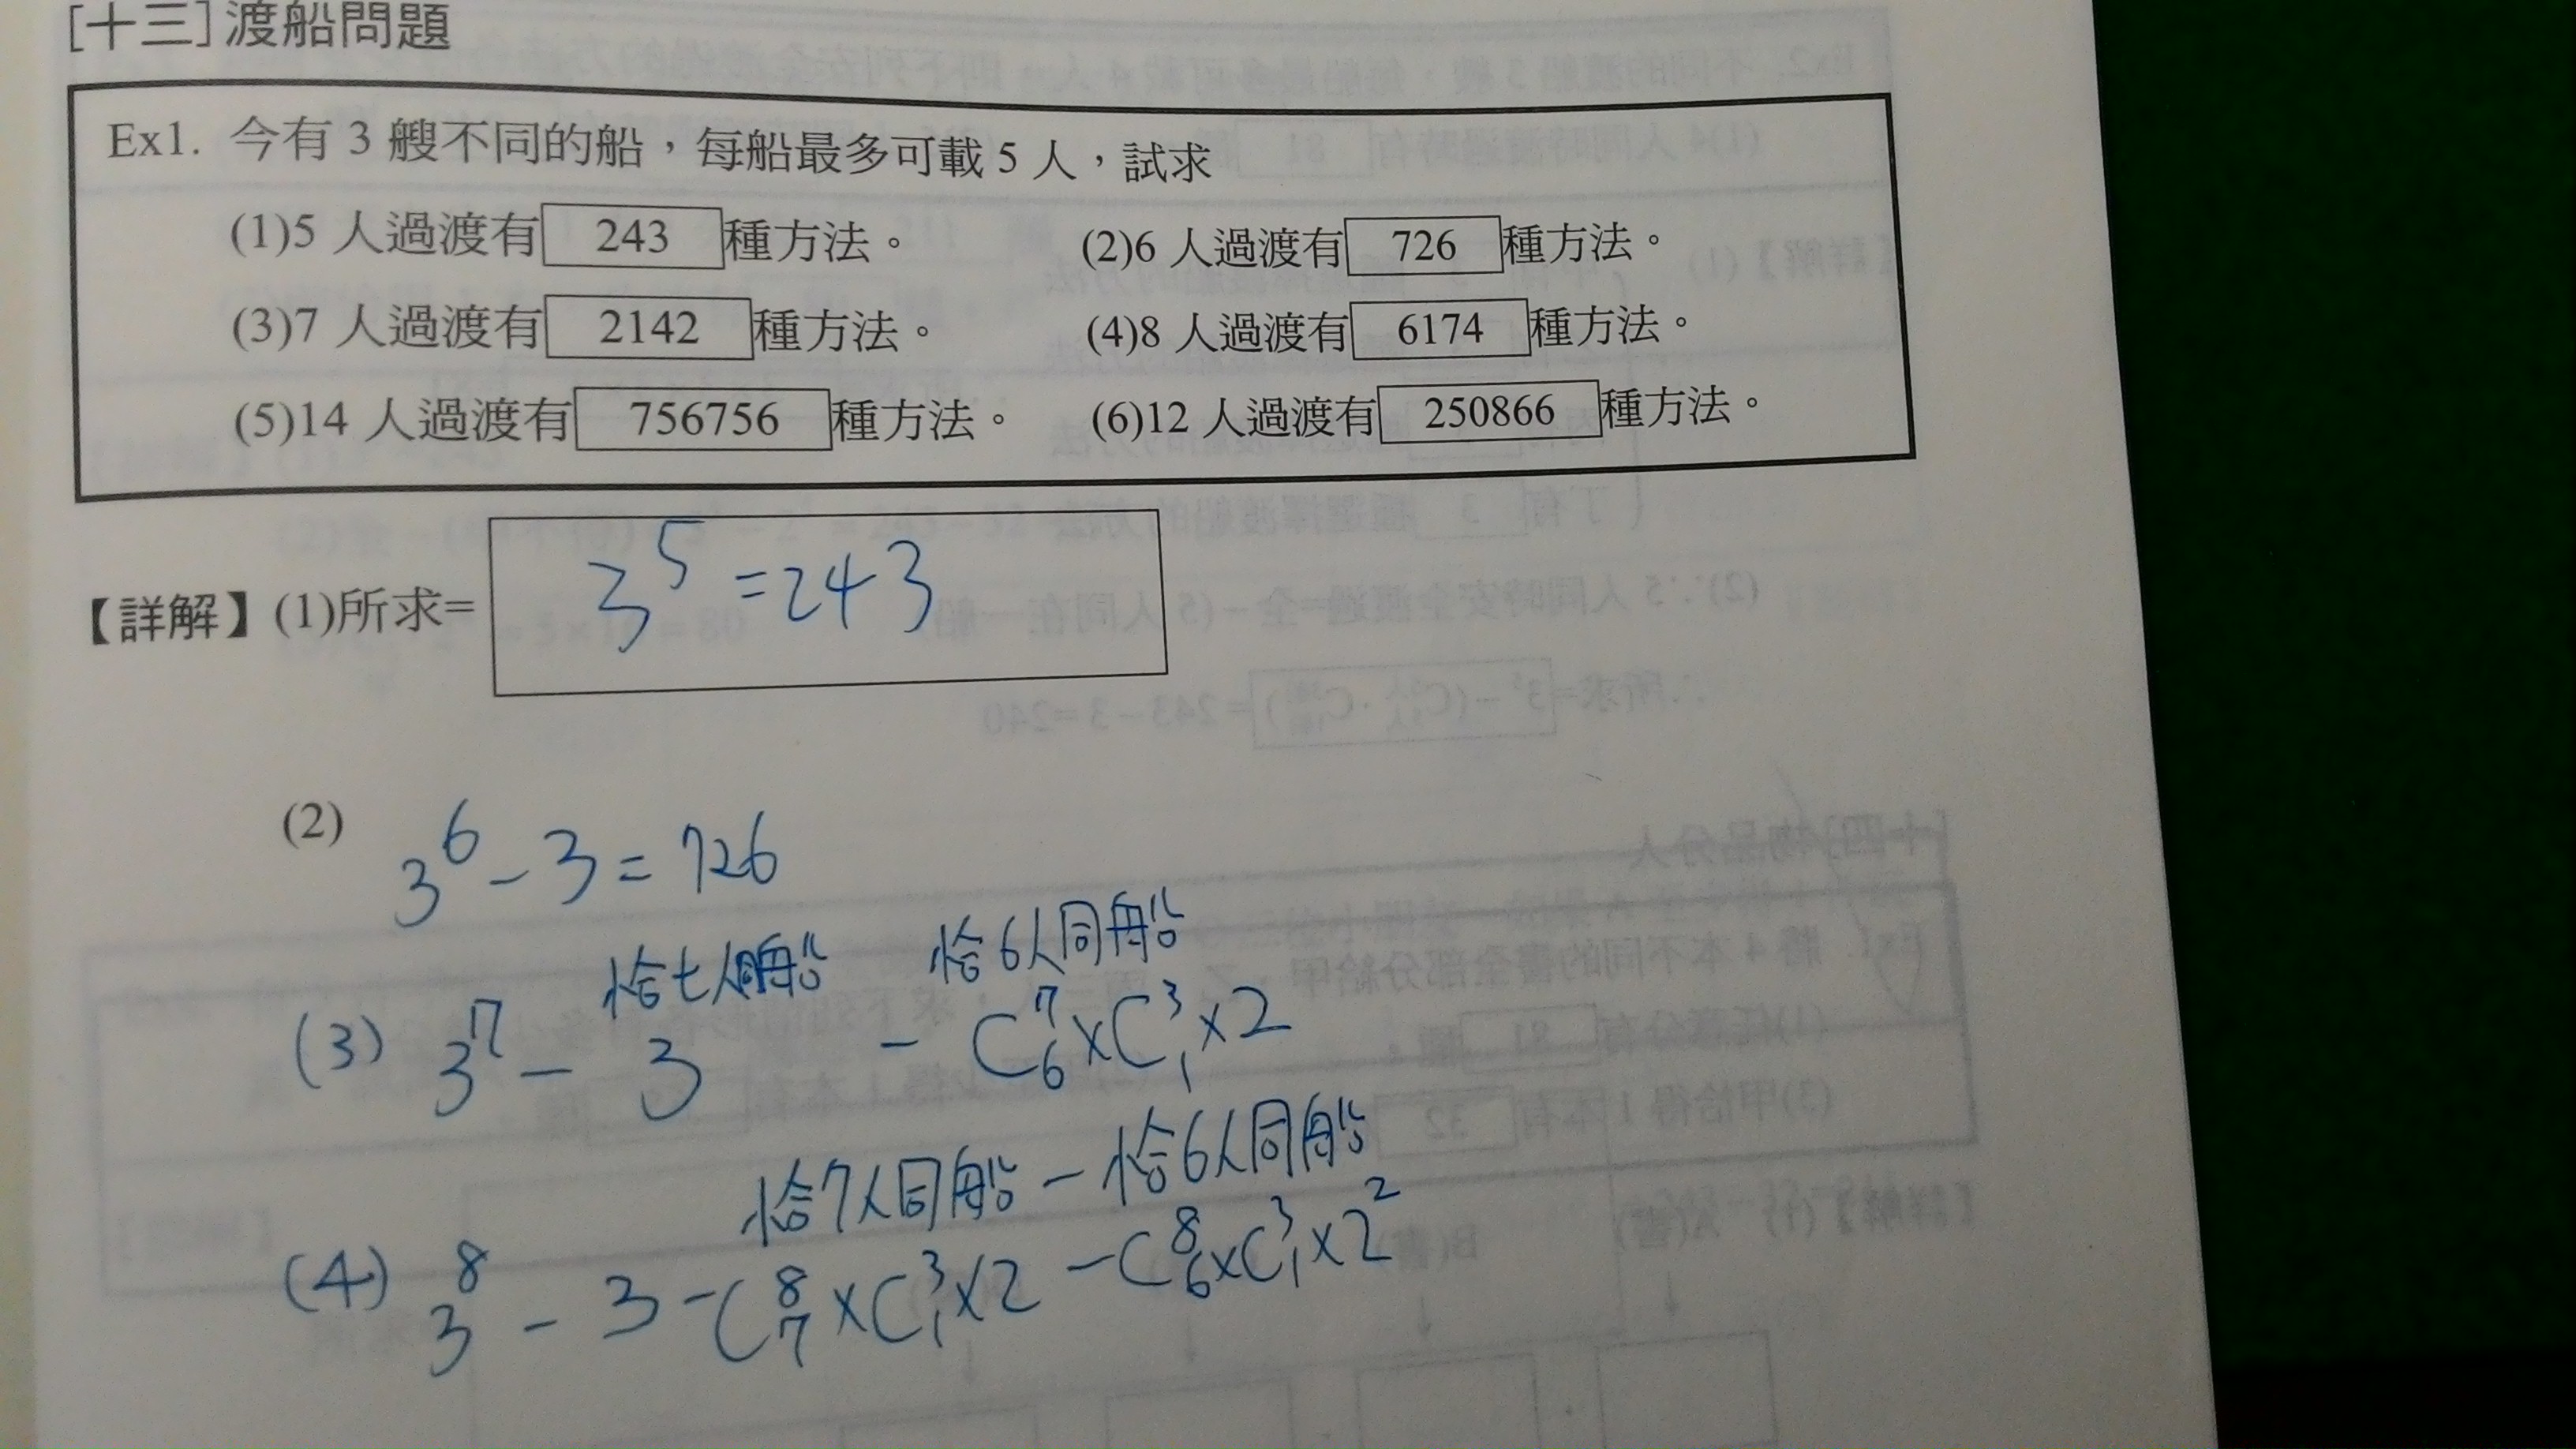 [十三]渡船問題
Ex1. 今有 3 艘不同的船，每船最多可載 5 人，試求
(1)5 人過渡有 243 種方法。 (2)6 人過渡有 726 種方法。
(3)7 人過渡有 2142 種方法。 (4)8 人過渡有 6174 種方法。
(5)14 人過渡有 756756 種方法。 (6)12 人過渡有 250866 種方法。
【詳解】(1)所求= 3⁵=243
(2) 3⁶-3=726
恰七人同船 恰6人同船
(3) 3⁷-3 - C⁷₆×C³₁×2
恰7人同船-恰6人同船
(4) 3⁸-3-C⁸₇×C³₁×2-C⁸₆×C³₁×2²